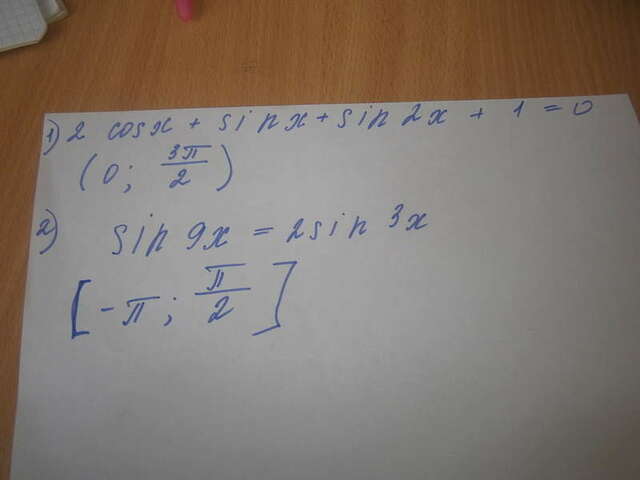 1) 2 cosx + sinx + sin2x + 1 = 0
(0; 3π/2)
2) sin 9x = 2sin 3x
[-π; π/2]